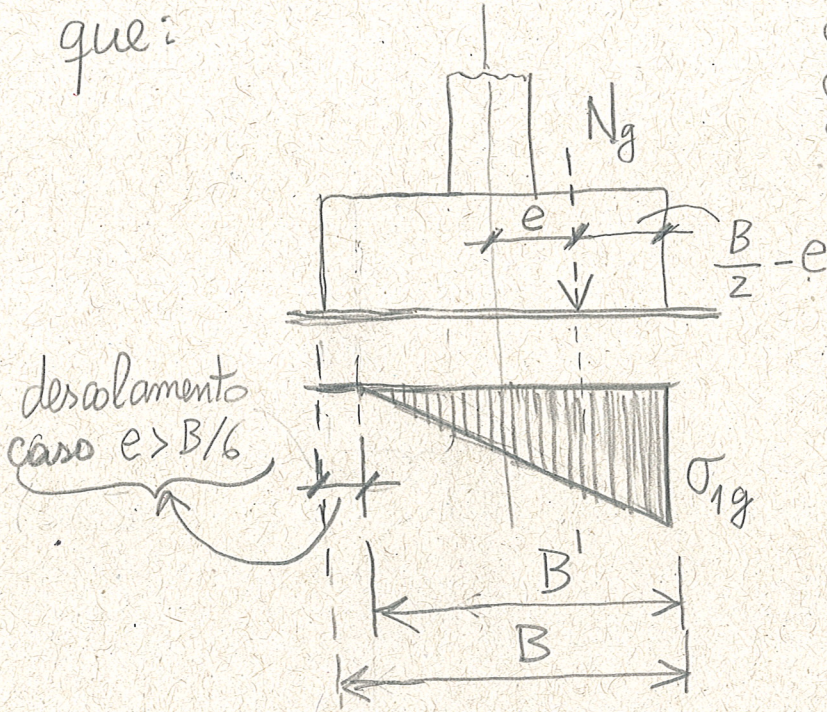 que:
Ng
e
B/2 - e
descolamento
caso e > B/6
σ1g
B'
B